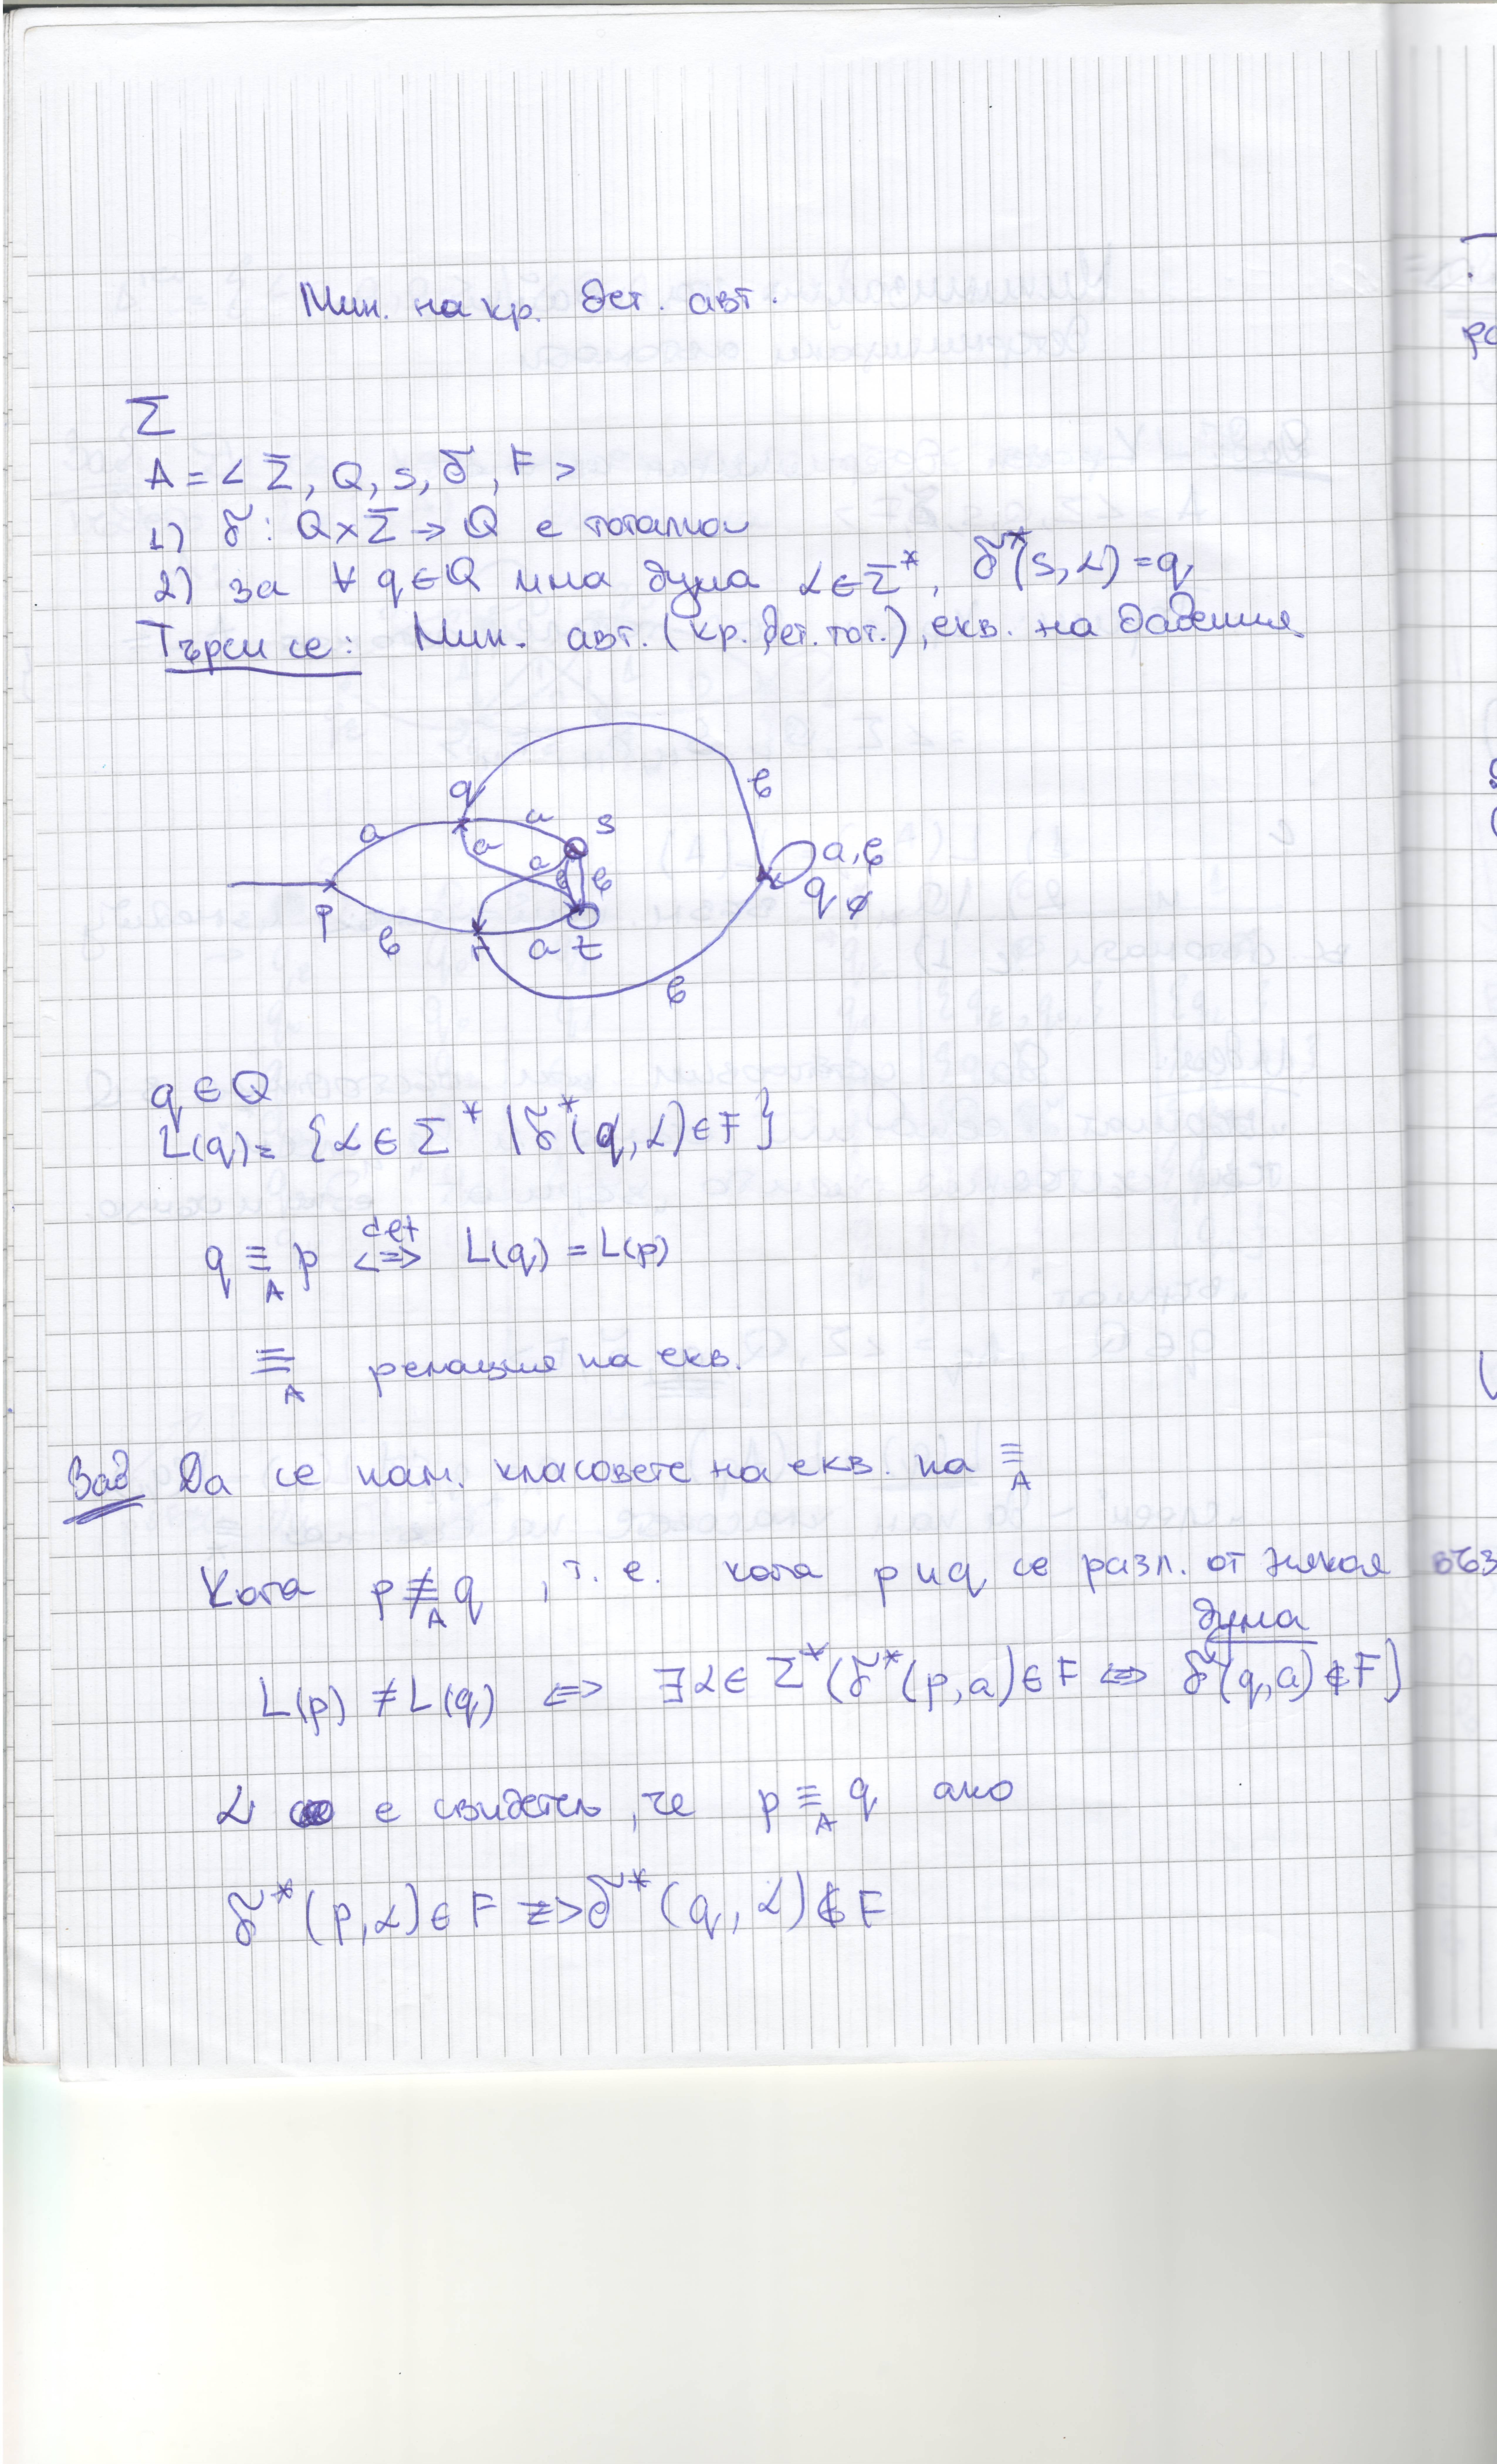 Мин. на кр. дет. авт.
Σ
A = < Σ, Q, s, δ, F >
1) δ: Q×Σ → Q е тотална
2) за ∀ q ∈ Q има дума α ∈ Σ*, δ*(s, α) = q
Търси се: Мин. авт. (кр. дет. тот.), екв. на дадения
q a s b
a a a b b a, b
p q∅
b r a t
b
q ∈ Q
L(q) = {α ∈ Σ* | δ*(q, α) ∈ F}
q ≡_A p ⟺ def L(q) = L(p)
≡_A релация на екв.
Зад Да се нам. класовете на екв. на ≡_A
Кога p ≢_A q, т. е. кога p и q се разл. от някоя
дума
L(p) ≠ L(q) ⟺ ∃α ∈ Σ* (δ*(p, a) ∈ F ⟺ δ*(q, a) ∉ F)
α е свидетел, че p ≡_A q ако
δ*(p, α) ∈ F ⟺ δ*(q, α) ∉ F